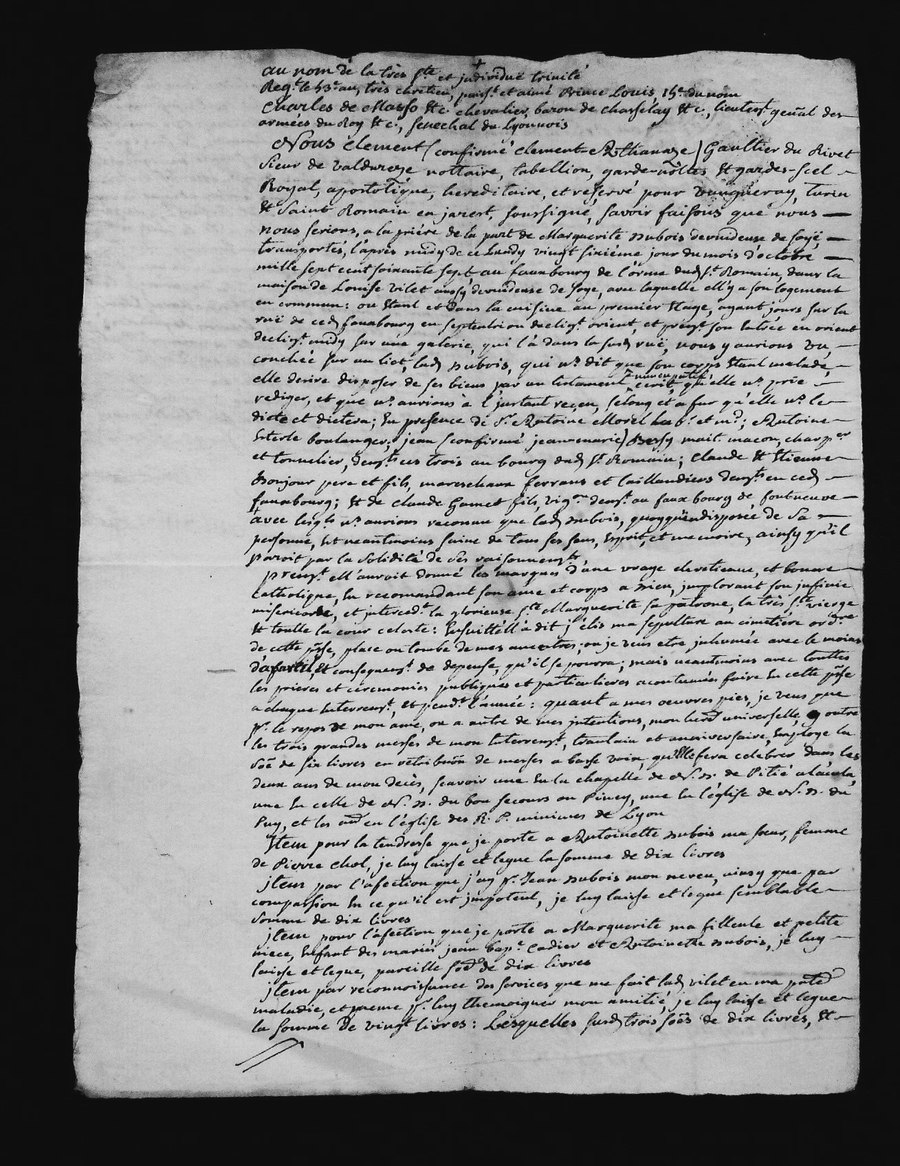 +
au nom de la très ste et individue trinité
Regt le 53e an, très chrétien, puist et aimé Prince Louis 15e du nom
Charles de Masso &c chevalier, baron de Chasselay &c, lieutent genal des
armées du Roy &c, senechal du Lyonnois
Nous Clement (confirmé Clement-Athanaze) Gaultier du Rivet
Sieur de Valdureze nottaire, tabellion, garde-nottes & gardes-scel
Royal, apostolique, hereditaire, et reservé pour Dungneray, Turin
& Saint Romain en jarest, soussigné, savoir faisons que nous
nous serions, a la prière de la part de Marguerite Dubois devuideuse de soye
transportés, l'après midy de ce Lundy vingt sixiéme jour du mois d'octobre
mille sept cent soixante sept au fauxbourg de l'orme dud St. Romain, dans la
maison de Louise Vilet aussy devuideuse de soye, avec laquelle ell'y a son logement
en commun: ou étant et dans la cuisine au premier étage, ayant jours sur la
ruë de ced fauxbourg en septentrion declint orient, et prent son entrée en orient
declint midy sur une galerie, qui l'è dans la susd ruë, nous y aurions vu
couchée sur un lict, lad Dubois, qui ns dit que son corps étant malade,
elle desire disposer de ses biens par un testament nuncupatif écrit, qu'elle ns prie
rediger, et que ns aurions à l'justant reçeu, selong et a fur qu'elle ns le
dicte et dictera; En presence de Sr Antoine Morel habt et md; Antoine
Esterle boulanger; jean (confirmé jean-marie) Bessy mait maçon, charper
et tonnelier, demts ces trois au bourg dud St. Romain; Claude & Etienne
Bonjour pere et fils, mareschaux ferrans et taillandiers demts en ced
fauxbourg; & de Claude Gamet fils, vign demt au faux bourg de fontneuve
avec lesqls ns aurions reconnu que lad Dubois, quoyqu'indisposée de sa
personne, est neantmoins saine de tous ses sens, Esprit, et memoire, ainsy qu'il
paroit par la solidité de ses raisonnemts
premt ell'auroit donné les marques d'une vraye chretienne, et bonne
Catholique, En recomandant son ame et corps a Dieu, jmplorant son jnfinie
misericorde, et intercedt la glorieuse Ste Marguerite sa patrone, la très Ste vierge
& toutte la cour celeste: Ensuitte ll'a dit j'élis ma sepulture au cimetière ordre
de cette psse, place ou tombe de mes ancestres; ou je veus etre jnhumée avec le moins
d'apareil, & consequent de depense, qu'il se pourra; mais neantmoins avec touttes
les prieres et céremonies publiques et particulieres acoutumées faire en cette psse
a chaque Enterremt, et pendt l'année: quant a mes oeuvres pies, je veus que
pr le repos de mon ame, ou a autre de mes intentions, mon herer universelle, outre
les trois grandes messes de mon Enterremt, trantain et anniversaire, Employe la
soe de six livres en retribuon de messes a basse voix, qu'Elle fera celebrer dans les
deux ans de mon decès, scavoir une en la chapelle de N. D. de Pitié
une En celle de N. D. du bon secours ou Pinay, une en l'église de N. D. du
Puy, et les aud en l'église des R. P. minimes de Lyon
Jtem pour la tendresse que je porte a Antoinette Dubois ma soeur, femme
de Pierre Chol, je luy laisse et legue la somme de dix livres
jtem par l'afection que j'ay pr Jean Dubois mon neveu, ainsy que par
compassion En ce qu'il est jmpotent, je luy laisse et legue semblable
somme de dix livres
jtem pour l'afection que je porte a Marguerite ma filleule et petite
niece, Enfant des mariés jean bapt Cadier et Antoinette Dubois, je luy
laisse et legue, pareille soe de dix livres
jtem par reconnoissance des services que me fait lad Vilet en ma pnte
maladie, et meme pr luy themoigner mon amitié, je luy laisse et legue
la somme de vingt livres: Lesquelles susd trois soes de dix livres, &